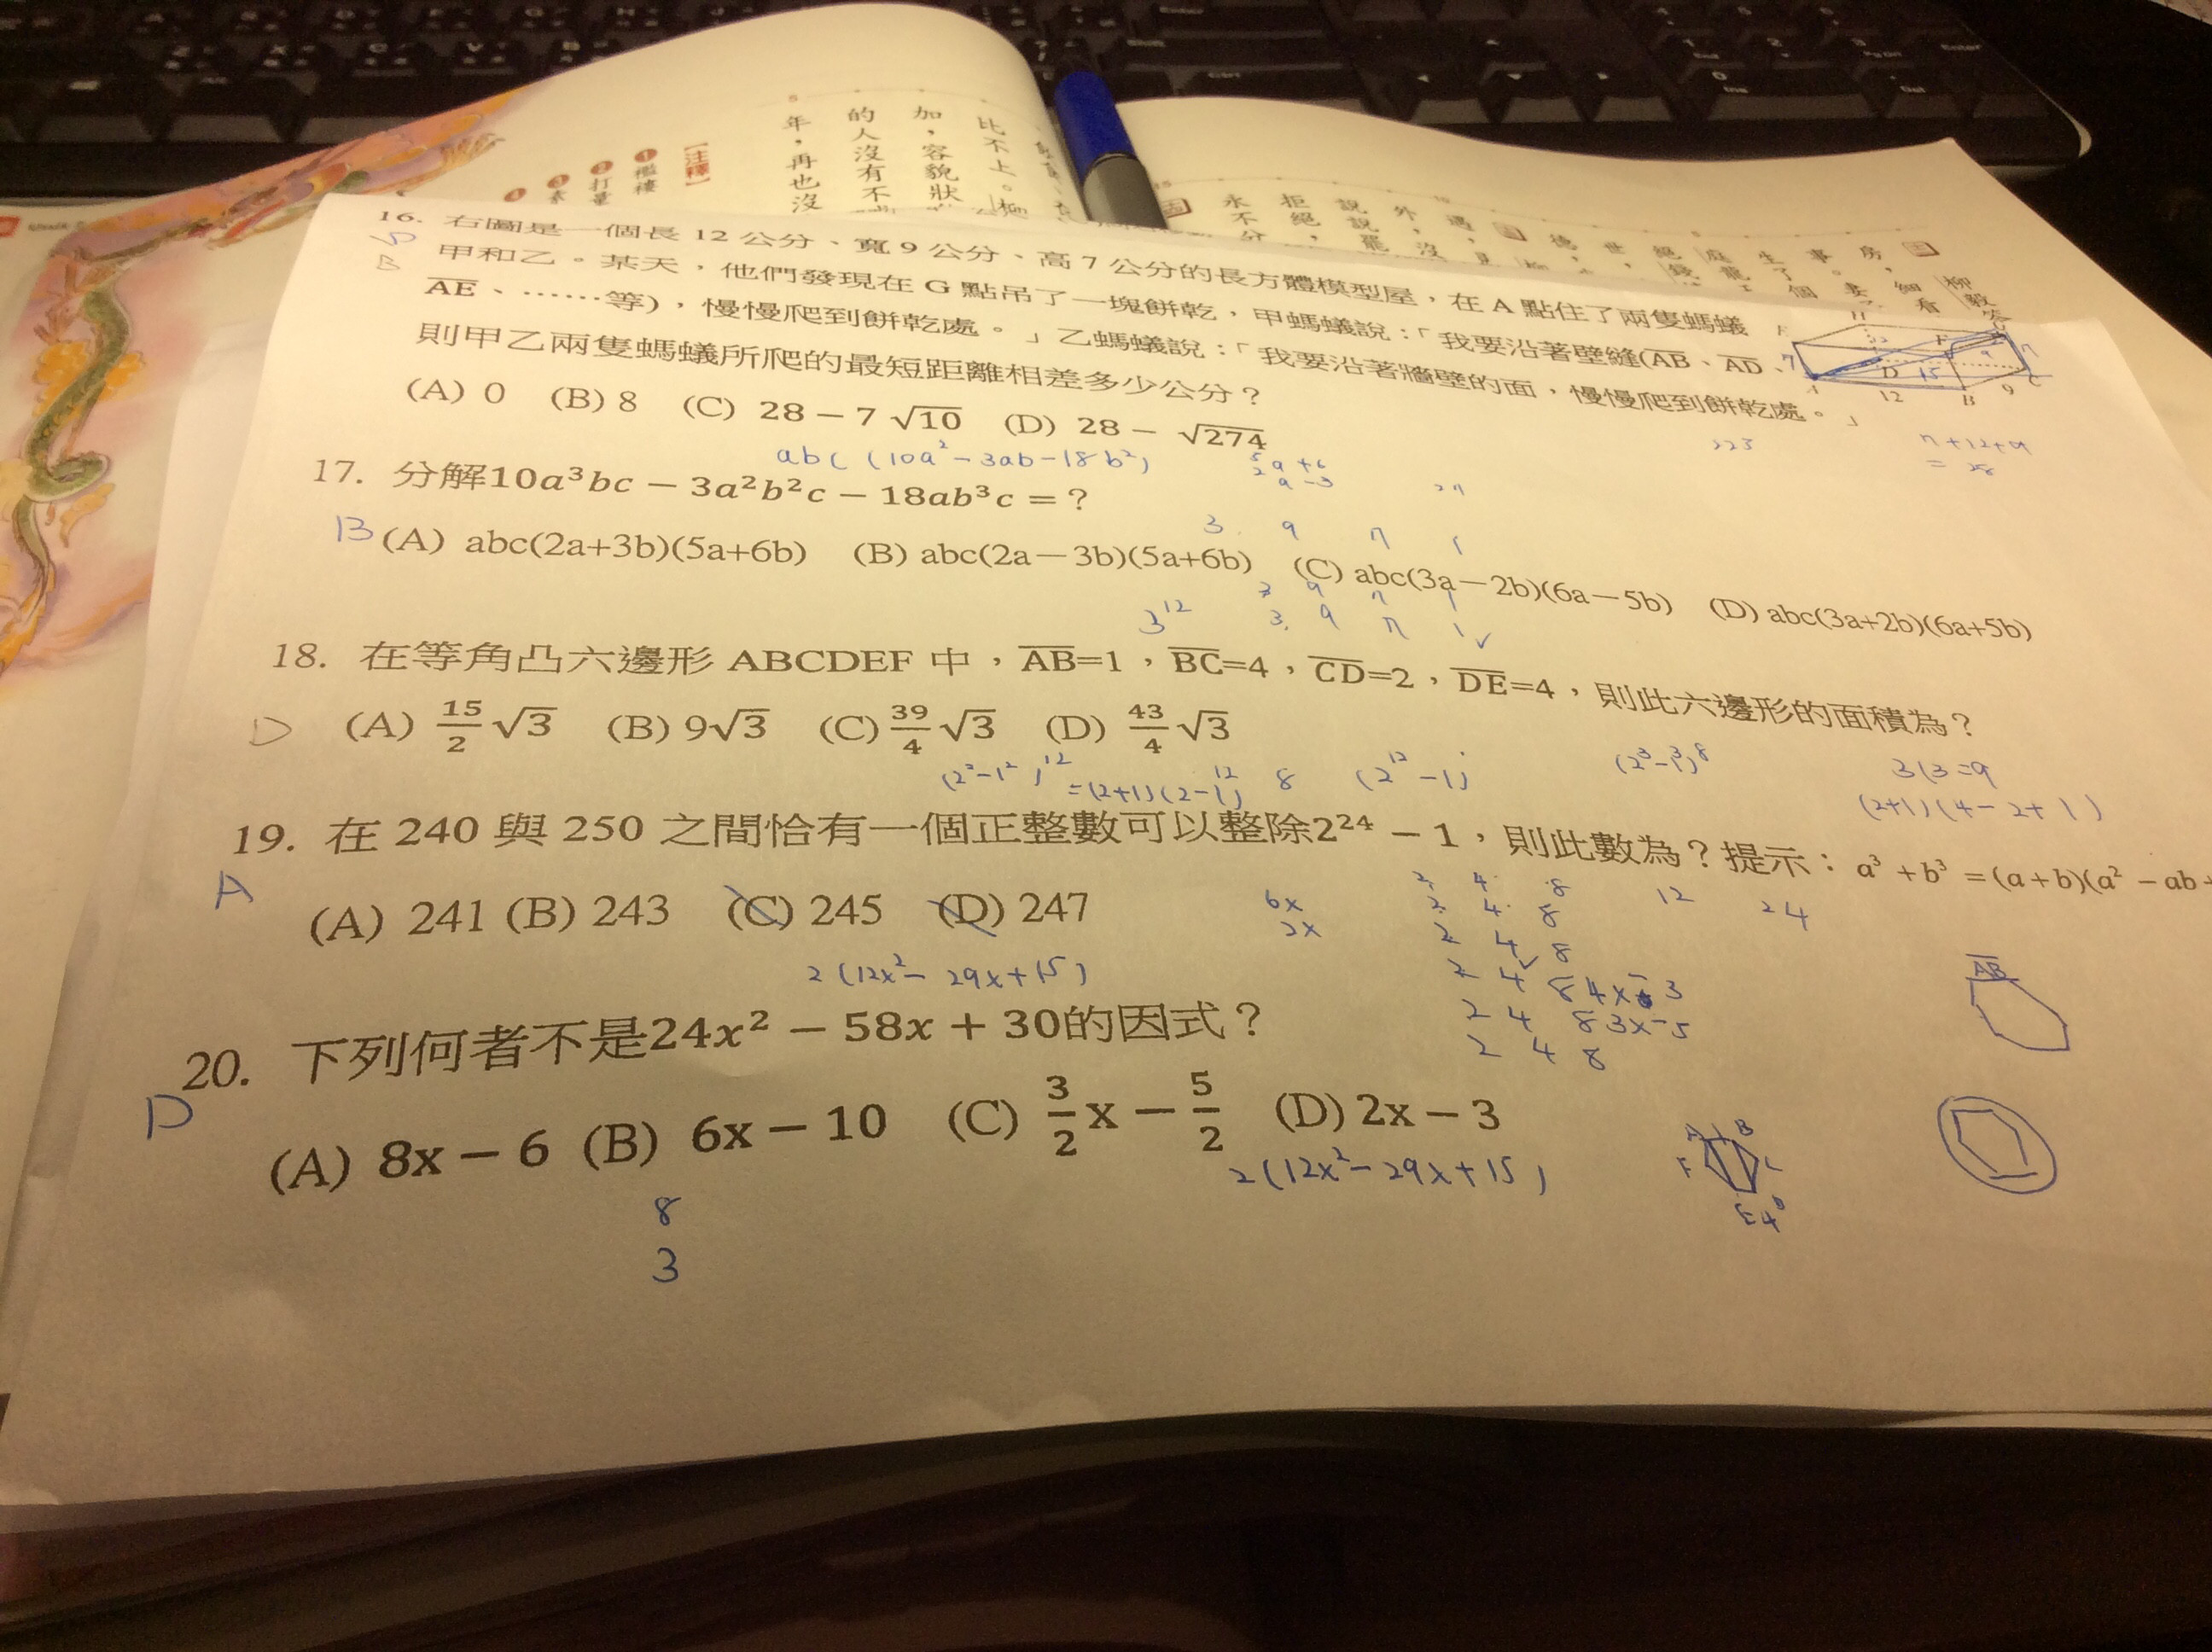 【注釋】
年,再也沒
的人沒有不
加,容貌狀
比不上。
16. 右圖是一個長 12 公分、寬 9 公分、高 7 公分的長方體模型屋,在 A 點住了兩隻螞蟻
甲和乙。某天,他們發現在 G 點吊了一塊餅乾,甲螞蟻說:「我要沿著壁縫(AB、AD、
AE、……等),慢慢爬到餅乾處。」乙螞蟻說:「我要沿著牆壁的面,慢慢爬到餅乾處。」
則甲乙兩隻螞蟻所爬的最短距離相差多少公分?
(A) 0 (B) 8 (C) 28 − 7√10 (D) 28 − √274
7 12 9 15 A B C D
7+12+9
= 28
abc (10a²−3ab−18b²)
17. 分解10a³bc − 3a²b²c − 18ab³c = ?
B
(A) abc(2a+3b)(5a+6b) (B) abc(2a−3b)(5a+6b) (C) abc(3a−2b)(6a−5b) (D) abc(3a+2b)(6a+5b)
3 9 7 1
3 9 7 1
3¹² 3 9 7 1
18. 在等角凸六邊形 ABCDEF 中,AB=1,BC=4,CD=2,DE=4,則此六邊形的面積為?
D
(A) 15/2 √3 (B) 9√3 (C) 39/4 √3 (D) 43/4 √3
(2²−1²)¹² =(2+1)(2−1)¹² 8 (2¹²−1) (2³−1³)⁸ 3(3=9
(2+1)(4−2+1)
19. 在 240 與 250 之間恰有一個正整數可以整除2²⁴ − 1,則此數為?提示:a³ + b³ = (a + b)(a² − ab +
A
(A) 241 (B) 243 (C) 245 (D) 247
6x
2x
2 4 8 12 24
2 4 8
2 4 8
2 4 8 4x−3
2 4 8 3x−5
2 4 8
2 (12x²− 29x+15)
AB
20. 下列何者不是24x² − 58x + 30的因式?
D
(A) 8x − 6 (B) 6x − 10 (C) 3/2 x − 5/2 (D) 2x − 3
2(12x²−29x+15)
8
3